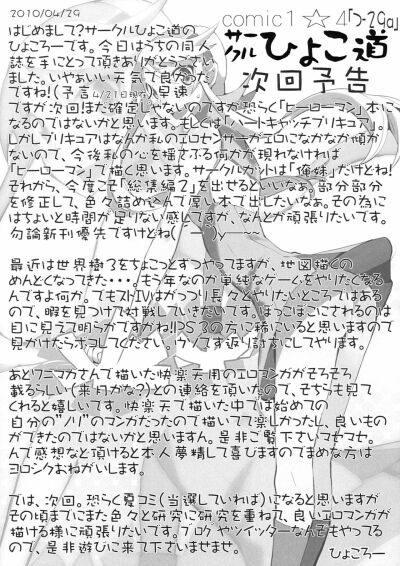 2010/04/29
comic1☆4「つ-29a」
サークル ひよこ道
次回予告
はじめまして?サークルひよこ道の
ひよころーです。今日はうちの同人
誌を手にとって頂きありがとうござい
ました。いやぁいい天気で良かった
ですね!(予言4/21日現在)早速
ですが次回!まだ確定じゃないのですが恐らく「ヒーローマン」本に
なるのではないかと思います。もしくは「ハートキャッチプリキュア」。
しかしプリキュアはなんか私のエロセンサーがエロになかなか傾か
ないので、今後私の心を揺さぶる何かが現れなければ
「ヒーローマン」で描く思います。サークルカットは「俺妹」だけどね!
それから、今度こそ「総集編2」を出せるといいなぁ。部分部分
を修正して、色々詰め込んで厚い本で出したいなぁ。その為に
はちょいと時間が足りない感じですが、なんとか頑張りたいです。
勿論新刊優先ですけどね(￣ー￣)y━~~
最近は世界樹3をちょこっとずつやってますが、地図描くの
めんどくなってきた・・・。もう年なのか単純なゲームをやりたくなる
んですよ何か。でもストIVはがっつり長々とやりたいところではある
ので、暇を見つけて対戦していきたいです。ぼっこぼこにされるのは
目に見えて明らかですがね!!PS3の方に稀にいると思いますので
見かけたらボコしてください。ケッコす返り討ちにしてやります。
あとワニマガさんで描いた快楽天用のエロマンガがそろそろ
載るらしい(来月かな?)との連絡を頂いたので、そちらも見て
くれると嬉しいです。快楽天で描いた中では始めての
自分の"ノリ"のマンガだったので描いてて楽しかったし、良いもの
ができたのではないかと思いますん。是非ご覧下さいマセマセ。
んで感想など頂けると本人夢精して喜びますのでまめな方は
ヨロシクおねがいします。
では、次回。恐らく夏コミ(当選していれば)になると思いますが
その頃までにまた色々と研究に研究を重ねて、良いエロマンガが
描ける様に頑張りたいです。ブログやツイッターなんぞもやってる
ので、是非遊びに来て下さいませませ。
ひよころー